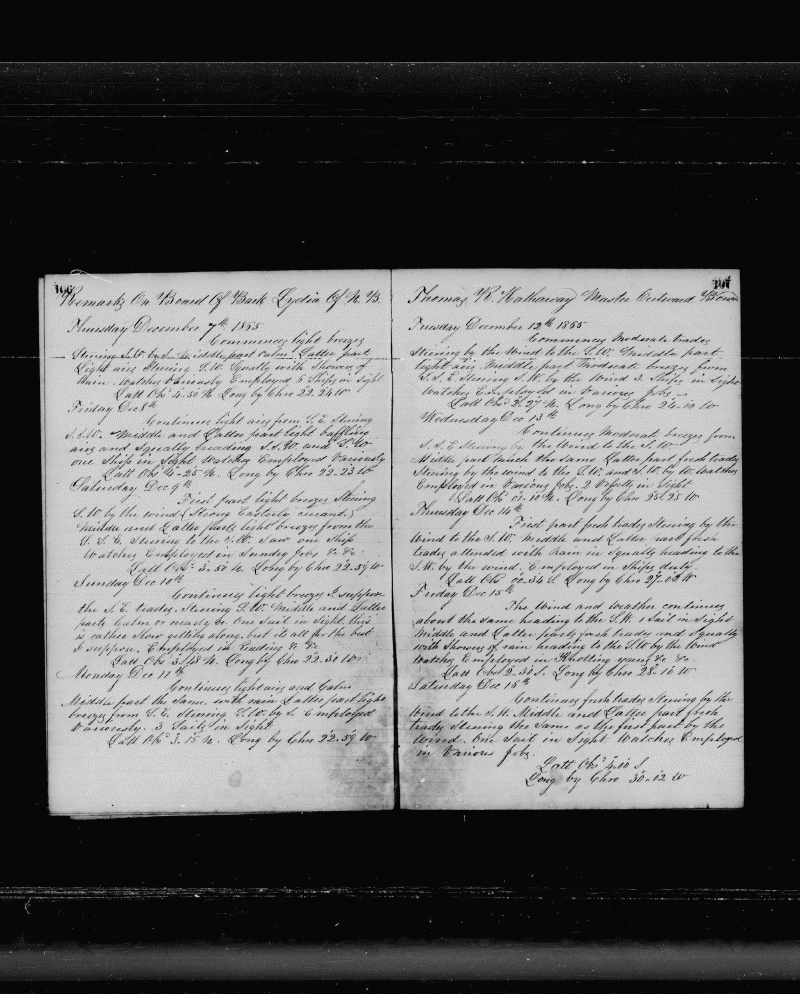 106
Remarks On Board Of Bark Lydia Of N. B.
Thursday December 7th 1855
Commences light breezes
Steering S.W by S. Middle part Calm. Latter part
Light airs Steering S.W. Squally with Showers of
Rain. Watches Variously Employed 5 Ships in Sight
Latt Obs 4.50 N. Long by Chro 22.24 W
Friday Dec 8th
Continues light airs from S.E. Steering
S.S.W. Middle and Latter part light baffling
airs and Squally heading S.S.W and S.W
one Ship in Sight Watches Employed Variously
Latt Obs 4-25 N. Long by Chro 22-23 W
Saturday Dec 9th
First part light breezes Steering
S.W by the wind Strong Easterly current.
Middle and Latter parts light breezes from the
S.S.E. Steering to the S.W. Saw one Ship
Watches Employed in Sundry Jobs &c &c
Latt Obs 3.50 N. Long by Chro 22.59 W
Sunday Dec 10th
Continues light breezes I suppose
the S.E. trades. Steering S.W. Middle and Latter
parts Calm or nearly so. One Sail in Sight. this
is rather Slow getting along. but its all for the best
I suppose. Employed in Reading &c &c
Latt Obs 3.48 N. Long by Chro 22.30 W
Monday Dec 11th
Continues light airs and Calm
Middle part the Same. with rain Latter part light
breezes from S.E. Steering S.W. by S. Employed
Variously. 3 Sails in Sight
Latt Obs 3.15 N. Long by Chro 22.59 W
107
Thomas R. Hathaway Master Outward Bound
Tuesday December 12th 1855
Commences Moderate trades
Steering by the Wind to the S.W. Middle part
light airs Middle part Moderate breezes from
S.S.E Steering S.W. by the Wind 3 Ships in Sight
Watches Employed in Various Jobs
Latt Obs 2.27 N. Long by Chro 24.10 W
Wednesday Dec 13th
Continues Moderate breezes from
S.S.E Steering by the Wind to the S.W.
Middle part Much the Same Latter part fresh trades
Steering by the wind to the S.W. and S.W. by W. Watches
Employed in Various Jobs. 2 Vessels in Sight
Latt Obs 01.10 N. Long by Chro 25.25 W
Thursday Dec 14th
First part fresh trades Steering by the
Wind to the S.W. Middle and Latter part fresh
trades attended with Rain in Squalls heading to the
S.W. by the wind. Employed in Ships duty.
Latt Obs 00.34 S. Long by Chro 27.03 W
Friday Dec 15th
The Wind and Weather continues
about the Same heading to the S.W. 1 Sail in Sight
Middle and Latter parts fresh trades and Squally
with Showers of rain heading to the S.W by the Wind
Watches Employed in Knotting yarns &c &c
Latt Obs 2.30 S. Long by Chro 28.16 W
Saturday Dec 15th
Continues fresh trades Steering by the
Wind to the S.W. Middle and Latter part fresh
trades Steering the Same as the first part by the
Wind. One Sail in Sight. Watches Employed
in Various Jobs.
Latt Obs 4.00 S
Long by Chro 30.02 W